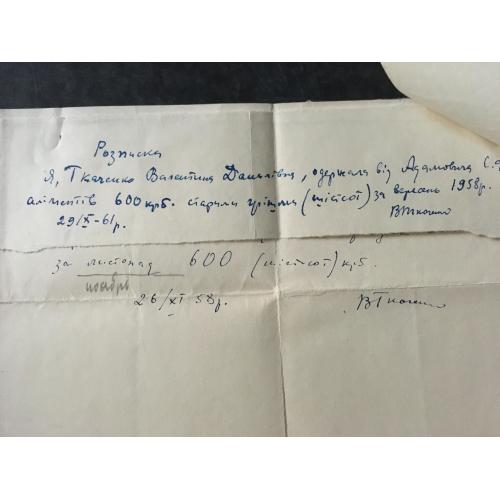 Розписка
Я, Ткаченко Валентина Данилівна, одержала від Адамовича С.Я
аліментів 600 крб. старими грішми (шістсот) за вересень 1958р.
29/X-61р. ВТкаченко
за листопад 600 (шістсот) крб.
ноябрь
26/XI 58р. ВТкаченко